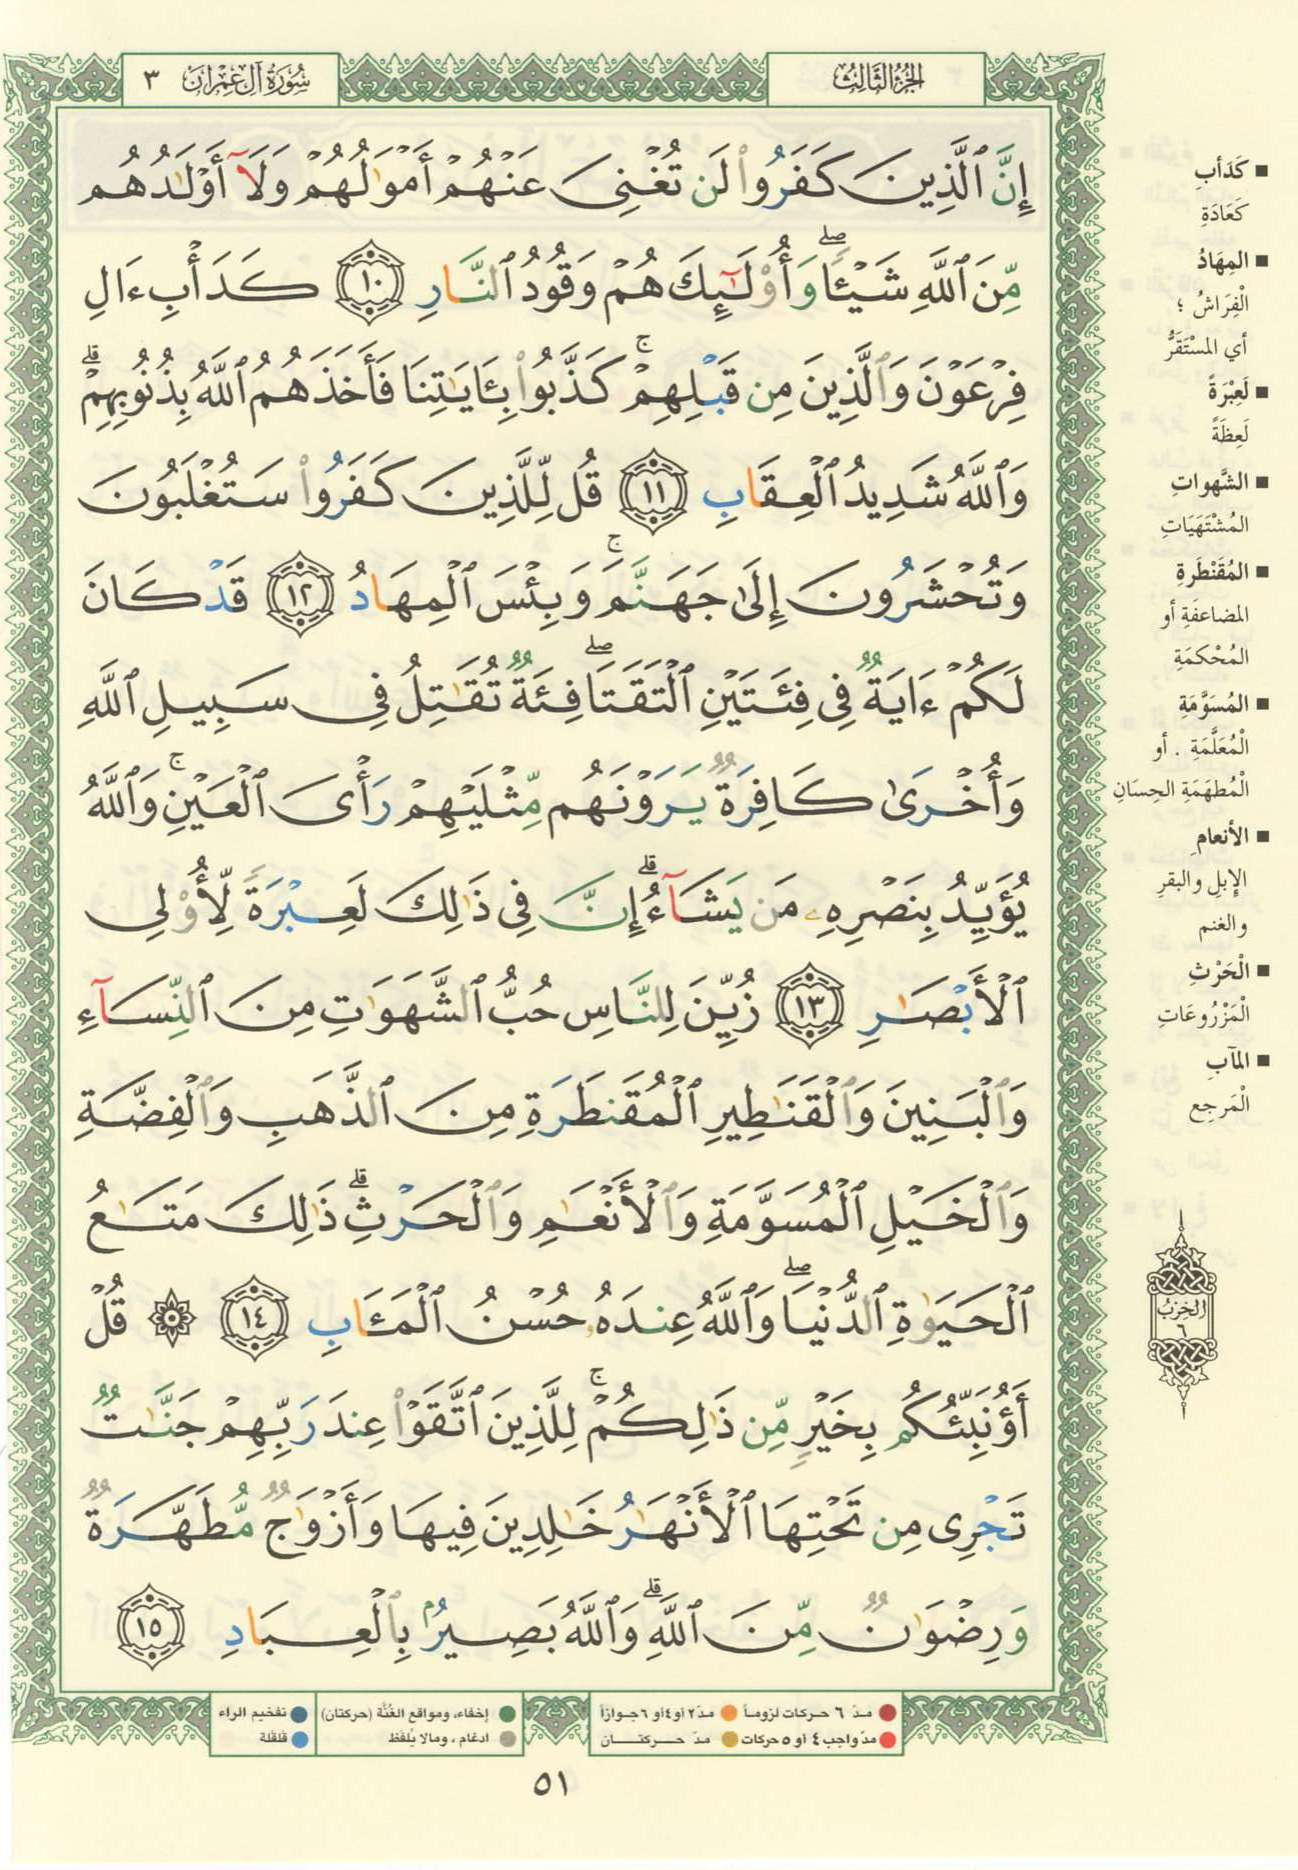 سُورَةُ آلِ عِمْرَانَ ٣
الجُزْءُ الثَّالِثُ
إِنَّ ٱلَّذِينَ كَفَرُوا۟ لَن تُغْنِىَ عَنْهُمْ أَمْوَٰلُهُمْ وَلَآ أَوْلَٰدُهُم
مِّنَ ٱللَّهِ شَيْـًٔا ۖ وَأُو۟لَٰٓئِكَ هُمْ وَقُودُ ٱلنَّارِ ١٠ كَدَأْبِ ءَالِ
فِرْعَوْنَ وَٱلَّذِينَ مِن قَبْلِهِمْ ۚ كَذَّبُوا۟ بِـَٔايَٰتِنَا فَأَخَذَهُمُ ٱللَّهُ بِذُنُوبِهِمْ ۗ
وَٱللَّهُ شَدِيدُ ٱلْعِقَابِ ١١ قُل لِّلَّذِينَ كَفَرُوا۟ سَتُغْلَبُونَ
وَتُحْشَرُونَ إِلَىٰ جَهَنَّمَ ۚ وَبِئْسَ ٱلْمِهَادُ ١٢ قَدْ كَانَ
لَكُمْ ءَايَةٌ فِى فِئَتَيْنِ ٱلْتَقَتَا ۖ فِئَةٌ تُقَٰتِلُ فِى سَبِيلِ ٱللَّهِ
وَأُخْرَىٰ كَافِرَةٌ يَرَوْنَهُم مِّثْلَيْهِمْ رَأْىَ ٱلْعَيْنِ ۚ وَٱللَّهُ
يُؤَيِّدُ بِنَصْرِهِۦ مَن يَشَآءُ ۗ إِنَّ فِى ذَٰلِكَ لَعِبْرَةً لِّأُو۟لِى
ٱلْأَبْصَٰرِ ١٣ زُيِّنَ لِلنَّاسِ حُبُّ ٱلشَّهَوَٰتِ مِنَ ٱلنِّسَآءِ
وَٱلْبَنِينَ وَٱلْقَنَٰطِيرِ ٱلْمُقَنطَرَةِ مِنَ ٱلذَّهَبِ وَٱلْفِضَّةِ
وَٱلْخَيْلِ ٱلْمُسَوَّمَةِ وَٱلْأَنْعَٰمِ وَٱلْحَرْثِ ۗ ذَٰلِكَ مَتَٰعُ
ٱلْحَيَوٰةِ ٱلدُّنْيَا ۖ وَٱللَّهُ عِندَهُۥ حُسْنُ ٱلْمَـَٔابِ ١٤ ۞ قُلْ
أَؤُنَبِّئُكُم بِخَيْرٍ مِّن ذَٰلِكُمْ ۚ لِلَّذِينَ ٱتَّقَوْا۟ عِندَ رَبِّهِمْ جَنَّٰتٌ
تَجْرِى مِن تَحْتِهَا ٱلْأَنْهَٰرُ خَٰلِدِينَ فِيهَا وَأَزْوَٰجٌ مُّطَهَّرَةٌ
وَرِضْوَٰنٌ مِّنَ ٱللَّهِ ۗ وَٱللَّهُ بَصِيرٌۢ بِٱلْعِبَادِ ١٥
■ كَدَأبِ
كَعَادَةِ
■ المِهَادُ
الْفِرَاشُ ؛
أي المسْتَقَرُّ
■ لَعِبْرَةً
لَعِظَةً
■ الشَّهواتِ
المُشْتَهَيَاتِ
■ المُقَنْطَرةِ
المضاعفَةِ أو
المُحْكمَةِ
■ المُسَوَّمَةِ
الْمُعَلَّمَةِ . أو
الْمُطهَمَةِ الحِسَانِ
■ الأنعامِ
الإبلِ والبقرِ
والغنم
■ الْحَرْثِ
الْمَزْرُوعَاتِ
■ المآبِ
الْمَرجِعِ
الحِزْبُ
٦
مدّ ٦ حركات لزوماً
مدّ ٢ أو ٤ أو ٦ جوازاً
إخفاء، ومواقع الغُنَّة (حركتان)
تفخيم الراء
مدّ واجب ٤ أو ٥ حركات
مدّ حركتان
ادغام ، ومالا يُلفَظ
قلقلة
٥١